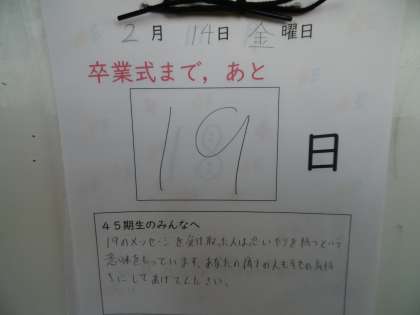 2月 14日 金曜日
卒業式まで，あと
19 日
45期生のみんなへ
19のメッセージを受け取った人は思いやりを持つという
意味をもっています。あなたの偉大の人もその気持
ちにしてあげてください。